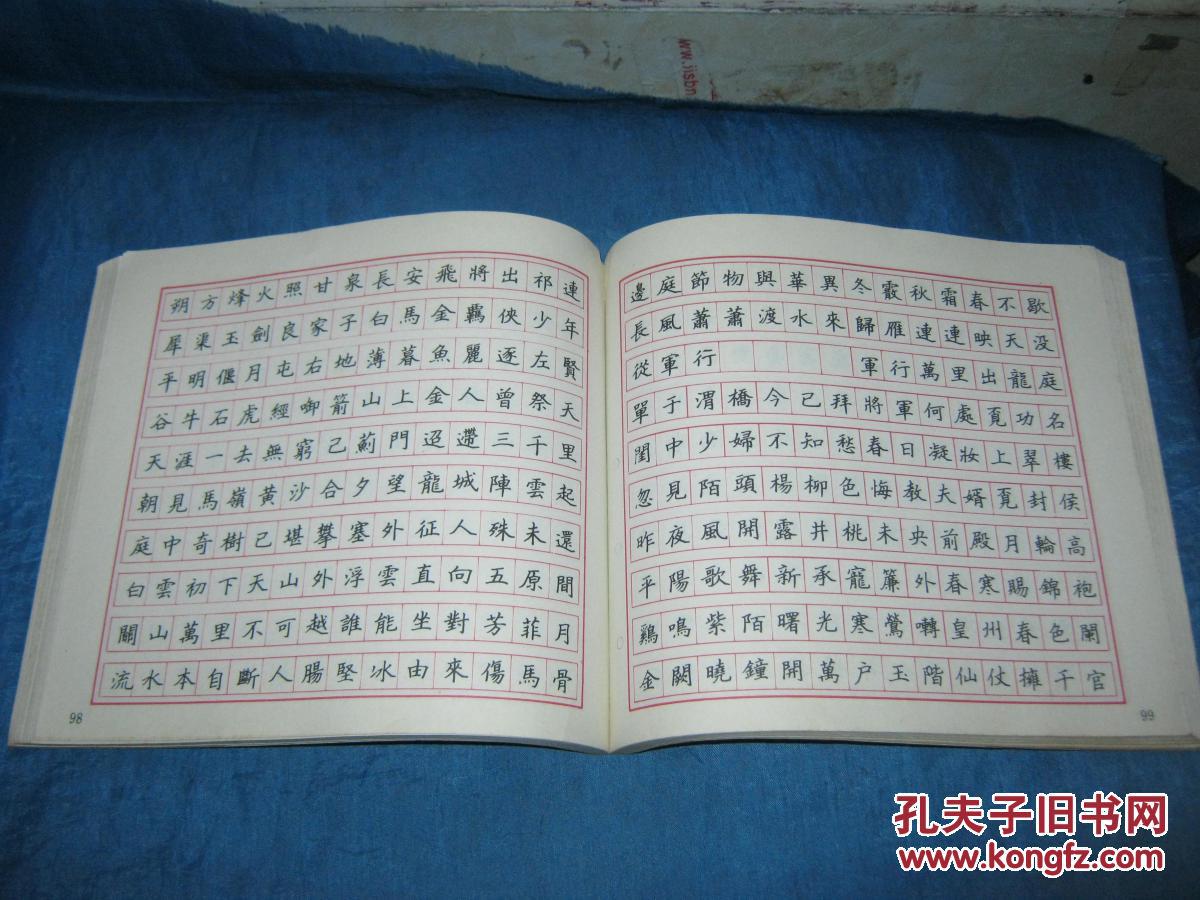 www.jisbn
朔方烽火照甘泉長安飛將出祁連
犀渠玉劍良家子白馬金羈俠少年
平明偃月屯右地薄暮魚麗逐左賢
谷牛石虎經啣箭山上金人曾祭天
天涯一去無窮已薊門迢遰三千里
朝見馬嶺黄沙合夕望龍城陣雲起
庭中奇樹已堪攀塞外征人殊未還
白雲初下天山外浮雲直向五原間
關山萬里不可越誰能坐對芳菲月
流水本自斷人腸堅冰由來傷馬骨
98
邊庭節物與華異冬霰秋霜春不歇
長風蕭蕭渡水來歸雁連連映天没
從軍行 軍行萬里出龍庭
單于渭橋今已拜將軍何處覓功名
閨中少婦不知愁春日凝妝上翠樓
忽見陌頭楊柳色悔教夫婿覓封侯
昨夜風開露井桃未央前殿月輪高
平陽歌舞新承寵簾外春寒賜錦袍
鷄鳴紫陌曙光寒鶯囀皇州春色闌
金闕曉鐘開萬户玉階仙仗擁千官
99
孔夫子旧书网
www.kongfz.com